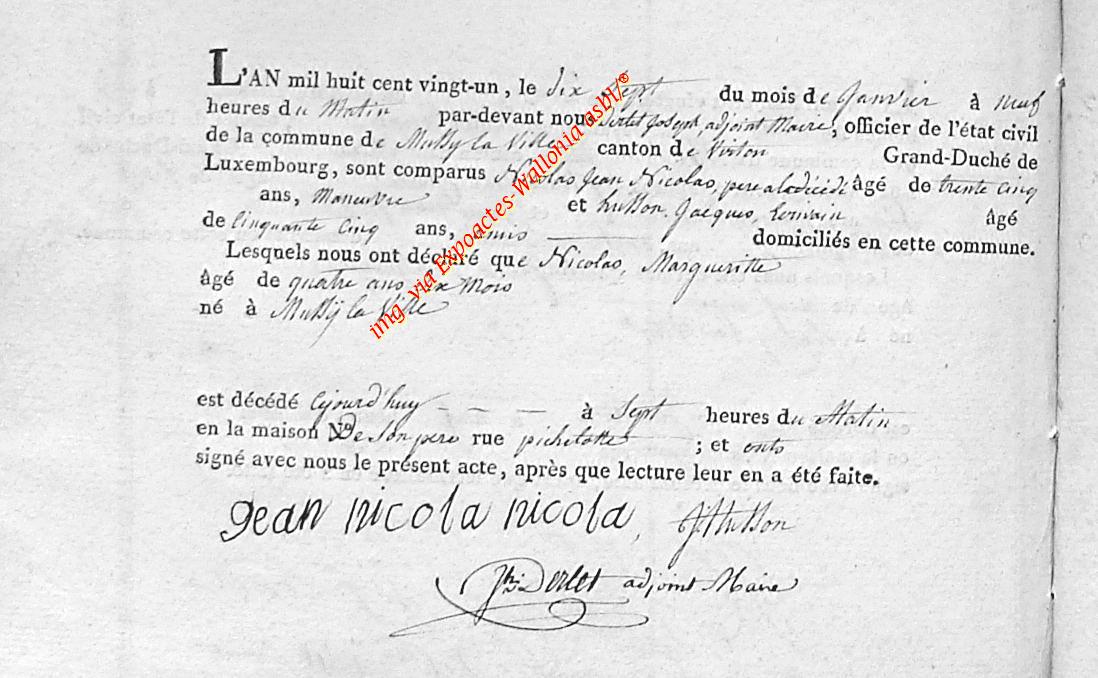 L'AN mil huit cent vingt-un, le dix Sept du mois de Janvier à neuf
heures du Matin par-devant nous Derlet Joseph, adjoint Maire, officier de l'état civil
de la commune de Mussy la Ville canton de Virton Grand-Duché de
Luxembourg, sont comparus Nicolas Jean Nicolas, pere a la décédé âgé de trente cinq
ans, Maneuvre et husson, Jacques, Ecrivain âgé
de Cinquante Cinq ans, amis domiciliés en cette commune.
Lesquels nous ont déclaré que Nicolas, Margueritte
âgé de quatre ans six Mois
né à Mussy la Ville
est décédé Cejourd'huy - - - à Sept heures du Matin
en la maison De Son pere rue pichelotte ; et onts
signé avec nous le présent acte, après que lecture leur en a été faite.
Jean nicola nicola, J husson
Jh Derlet adjoint Maire
img via Expoactes-Wallonia asbl/®